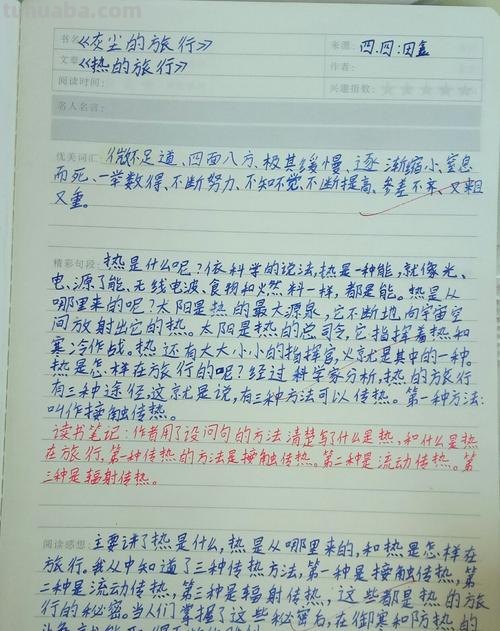 tuhuaba.com
书名《灰尘的旅行》 来源: 四.四:田
文章《热的旅行》 作者:
阅读时间: 兴趣指数:
名人名言:
优美词汇: 微不足道、四面八方、极其缓慢、逐渐缩小、窒息
而死、一举数得、不断努力、不知不觉、不断提高、参差不齐、又粗
又重。
精彩句段: 热是什么呢?依科学的说法,热是一种能,就像光、
电、源了能、无线电波、食物和火然料一样,都是能。热是从
哪里来的呢?太阳是热的最大源泉,它不断地向宇宙空
间放射出它的热。太阳是热的总司令,它指挥着热和
寒冷作战。热还有大大小小的指挥官,火就是其中的一种。
热是怎样在旅行的呢?经过科学家分析,热的旅行
有三种途径,这就是说,有三种方法可以传热。第一种方法:
叫作接触传热。
读书笔记:作者用了设问句的方法清楚写了什么是热,和什么是热
在旅行,第一种传热的方法是接触传热。第二种是流动传热。第
三种是辐射传热。
阅读感想: 主要讲了热是什么,热是从哪里来的,和热是怎样在
旅行。我从中知道了三种传热方法,第一种是接触传热,第
二种是流动传热,第三种是辐射传热,这些都是热的旅
行的秘密。当人们掌握了这些秘密后,在御寒和防热的